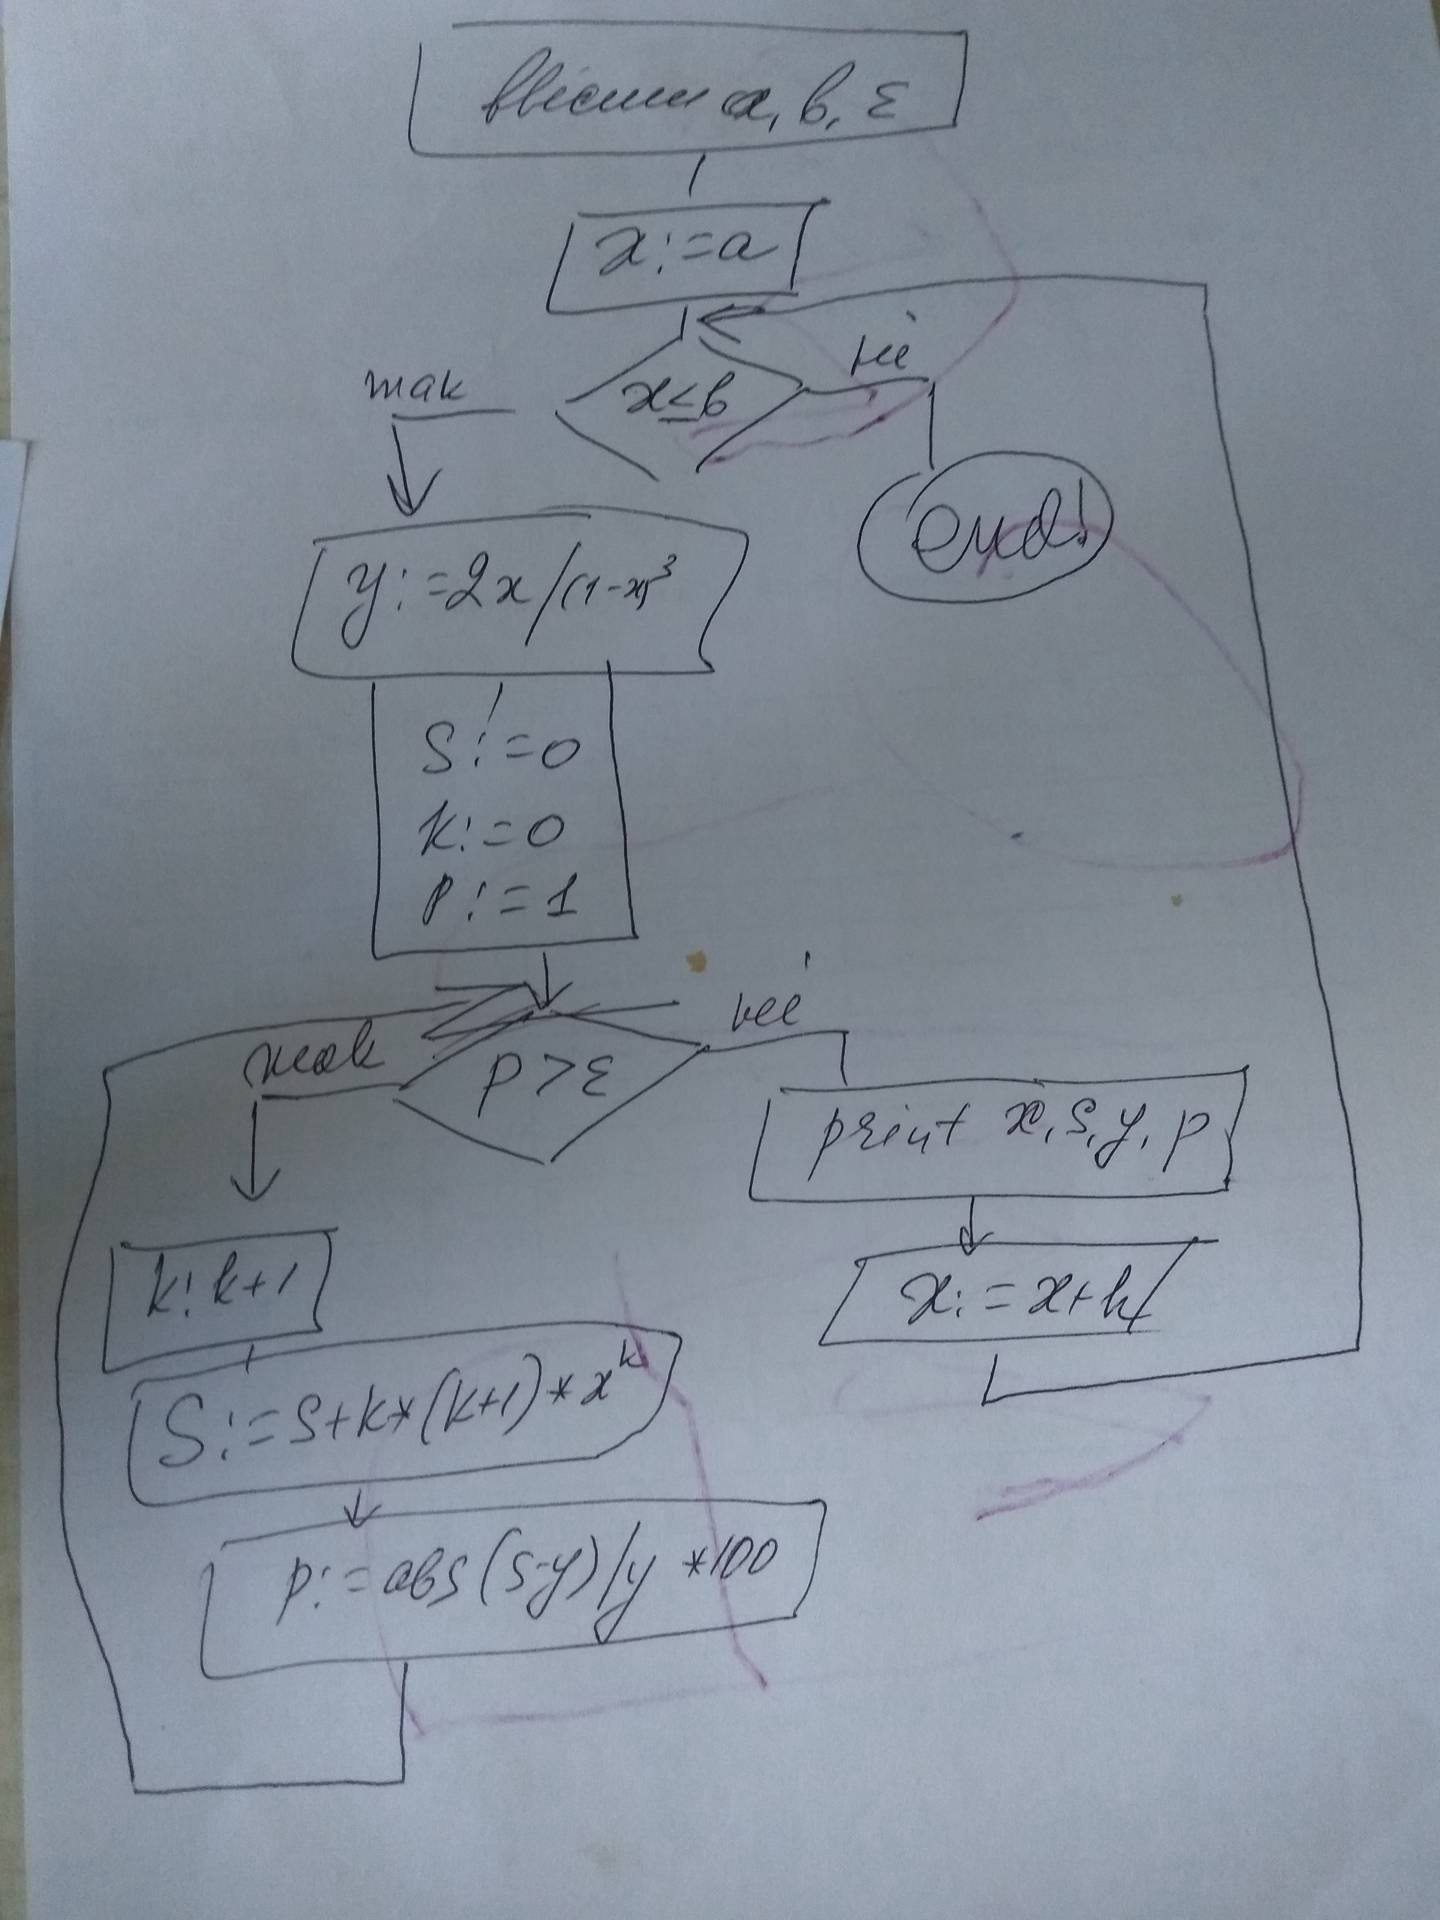 ввести a, b, ε
x:=a
x≤b
так
ні
end!
y:=2x/(1-x)³
S:=0
K:=0
P:=1
p>ε
так
ні
print x, s, y, p
x:=x+h
k:k+1
S:=S+k*(k+1)*x^k
p:=abs(s-y)/y *100